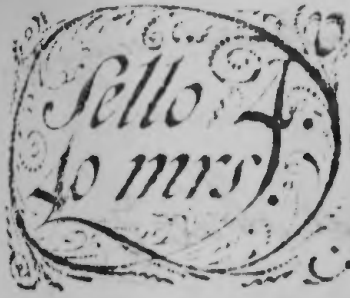 Sello 4.º
40 mrs.